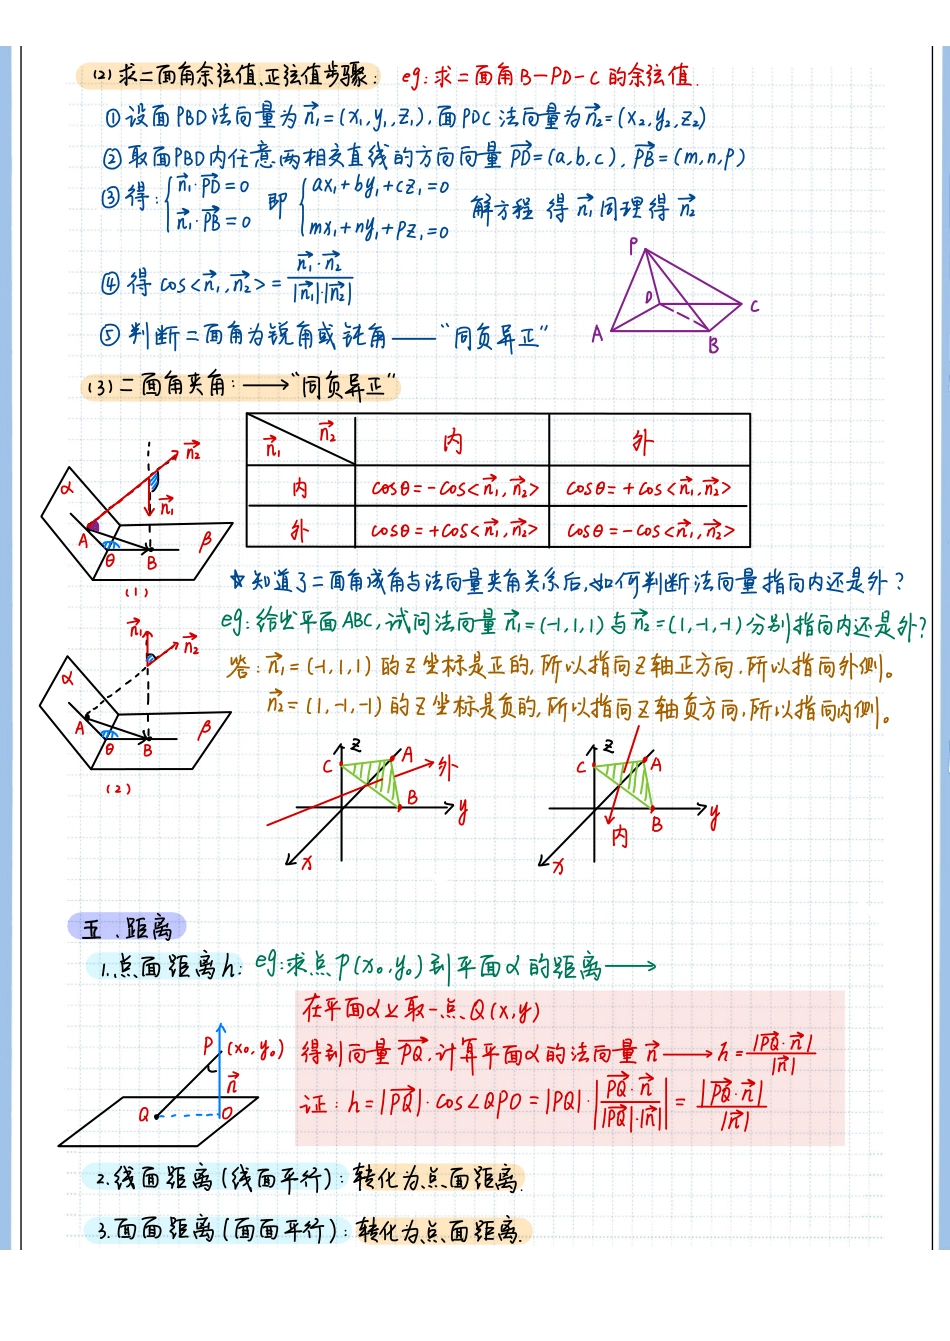 (2) 求二面角余弦值、正弦值步骤: eg:求二面角B-PD-C的余弦值.
①设面PBD法向量为n₁=(x₁,y₁,z₁),面PDC法向量为n₂=(x₂,y₂,z₂)
②取面PBD内任意两相交直线的方向向量PD=(a,b,c),PB=(m,n,p)
③得:{n₁·PD=0 即 {ax₁+by₁+cz₁=0 解方程 得n₁同理得n₂
n₁·PB=0 mx₁+ny₁+pz₁=0
④得 cos<n₁,n₂>=n₁·n₂/|n₁|·|n₂|
P
D
C
A
B
⑤判断二面角为锐角或钝角——“同负异正”
(3)二面角夹角:→“同负异正”
n₁ n₂ 内 外
内 cosθ=-cos<n₁,n₂> cosθ=+cos<n₁,n₂>
外 cosθ=+cos<n₁,n₂> cosθ=-cos<n₁,n₂>
n₂
α
n₁
A
θ
B
β
(1)
☆知道了二面角成角与法向量夹角关系后,如何判断法向量指向内还是外?
eg:给出平面ABC,试问法向量n₁=(-1,1,1)与n₂=(1,-1,-1)分别指向内还是外?
答:n₁=(-1,1,1)的z坐标是正的,所以指向z轴正方向,所以指向外侧。
n₂=(1,-1,-1)的z坐标是负的,所以指向z轴负方向,所以指向内侧。
n₁
n₂
α
A
θ
B
β
(2)
z
C
A
外
B
y
x
z
C
A
B
y
内
x
五、距离
1.点面距离h: eg:求点P(x₀,y₀)到平面α的距离→
在平面α上取一点Q(x,y)
得到向量PQ,计算平面α的法向量n→h=|PQ·n|/|n|
证:h=|PQ|·cos∠QPO=|PQ|·|PQ·n/|PQ|·|n||=|PQ·n|/|n|
P (x₀,y₀)
n
Q
O
2.线面距离(线面平行):转化为点面距离.
3.面面距离(面面平行):转化为点面距离.